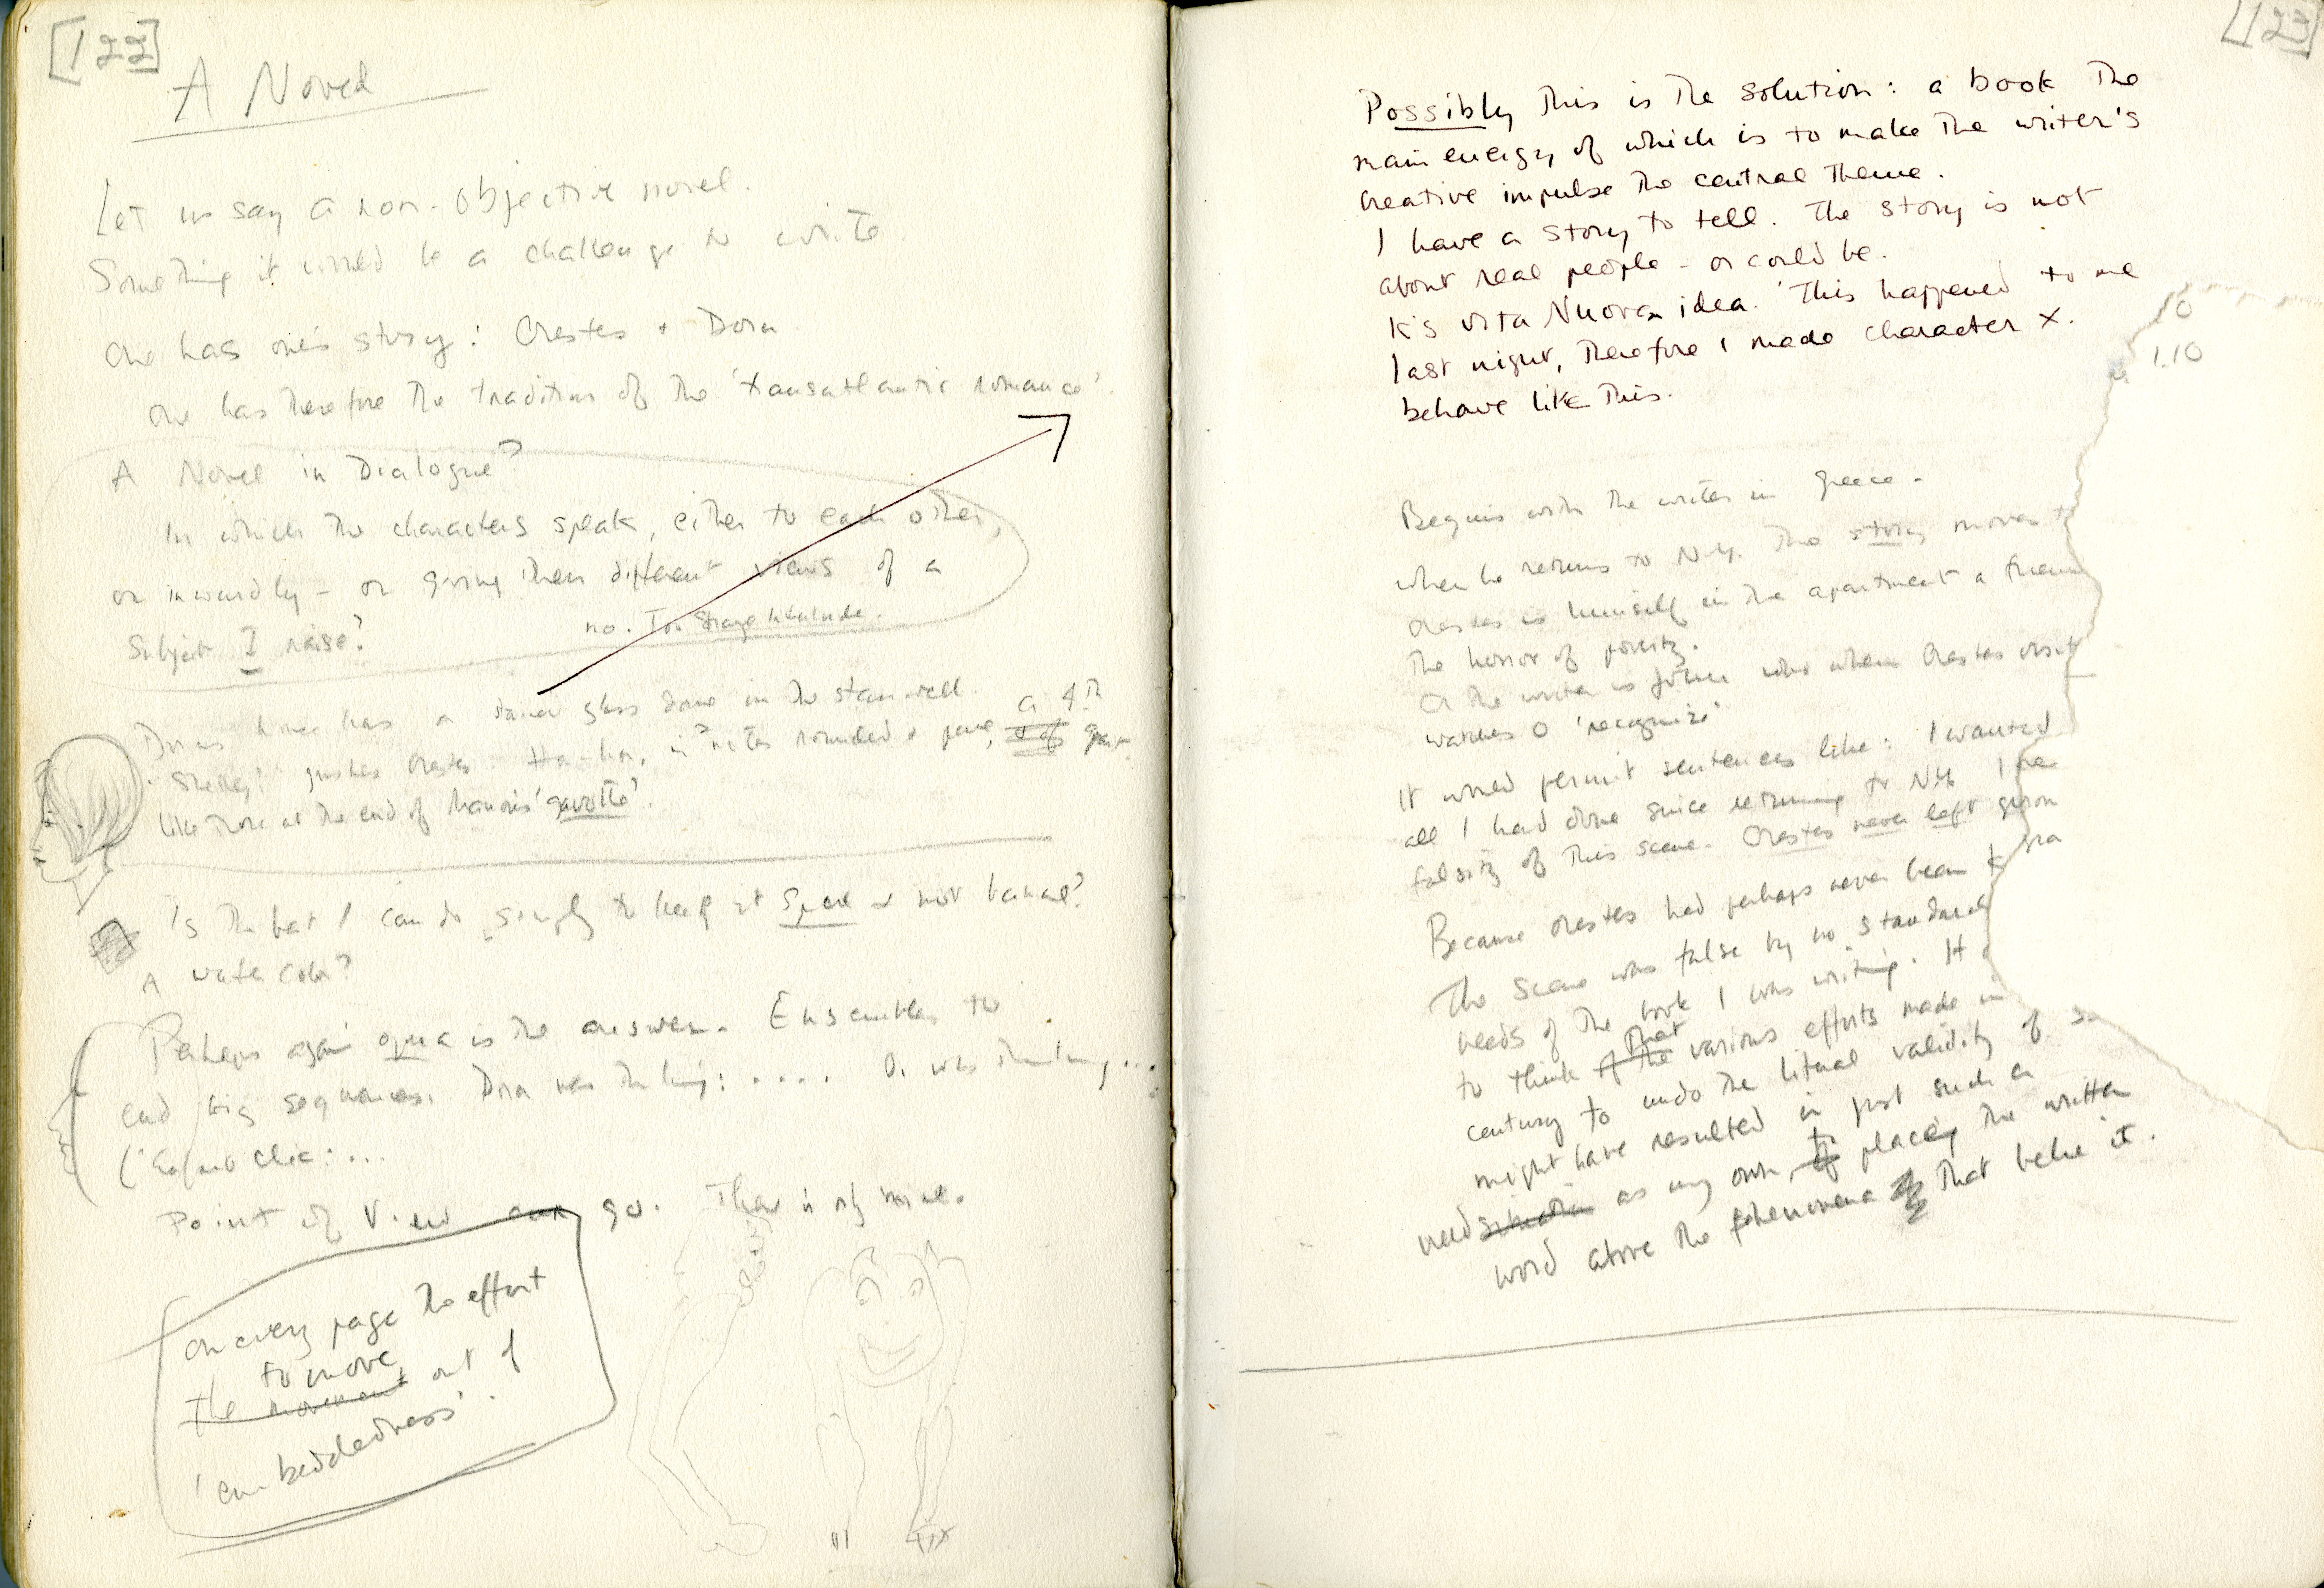 [122]
A Novel
Let us say a non-objective novel.
Something it would be a challenge to write.
One has one's story: Orestes + Dora
One has therefore the tradition of the 'transatlantic romance'.
A Novel in Dialogue?
In which the characters speak, either to each other,
or inwardly - or giving their different views of a
Subject I raise?
no. Too Strange Interlude.
Dora's house has a stained glass dome in the stairwell.
'Shelley!' gushes Orestes. Ha-ha, in notes rounded + pure, a 4th
like those at the end of 'gavotte'.
Is the best I can do simply to keep it spare + not banal?
A water color?
Perhaps again opera is the answer. Ensembles to
end big sequences. Dora was thinking: .... O. was thinking ...
Point of View can go. There is only mine.
On every page the effort
to move
the movement out of
'embeddedness'.
[123]
Possibly this is the solution: a book the
main energy of which is to make the writer's
creative impulse the central theme.
I have a story to tell. The story is not
about real people - or could be.
K's Vita Nuova idea. 'This happened to me
last night, therefore I made character X.
behave like this.
0
1.10
Begins with the writer in Greece -
when he returns to N.Y. The story moves
Orestes is himself in the apartment a
The horror of poverty.
Or the writer is who when Orestes visit
watches O 'recognize'
It would permit sentences like: I wanted
all I had done since returning to NY. I
falsity of this scene. Orestes never left
Because Orestes had perhaps never been
The scene was false by no standard
needs of the book I was writing. It
that
to think of the various efforts made in
century to undo the literal validity of
might have resulted in just such a
need situation as my own, to placing the written
word above the phenomena that belie it.